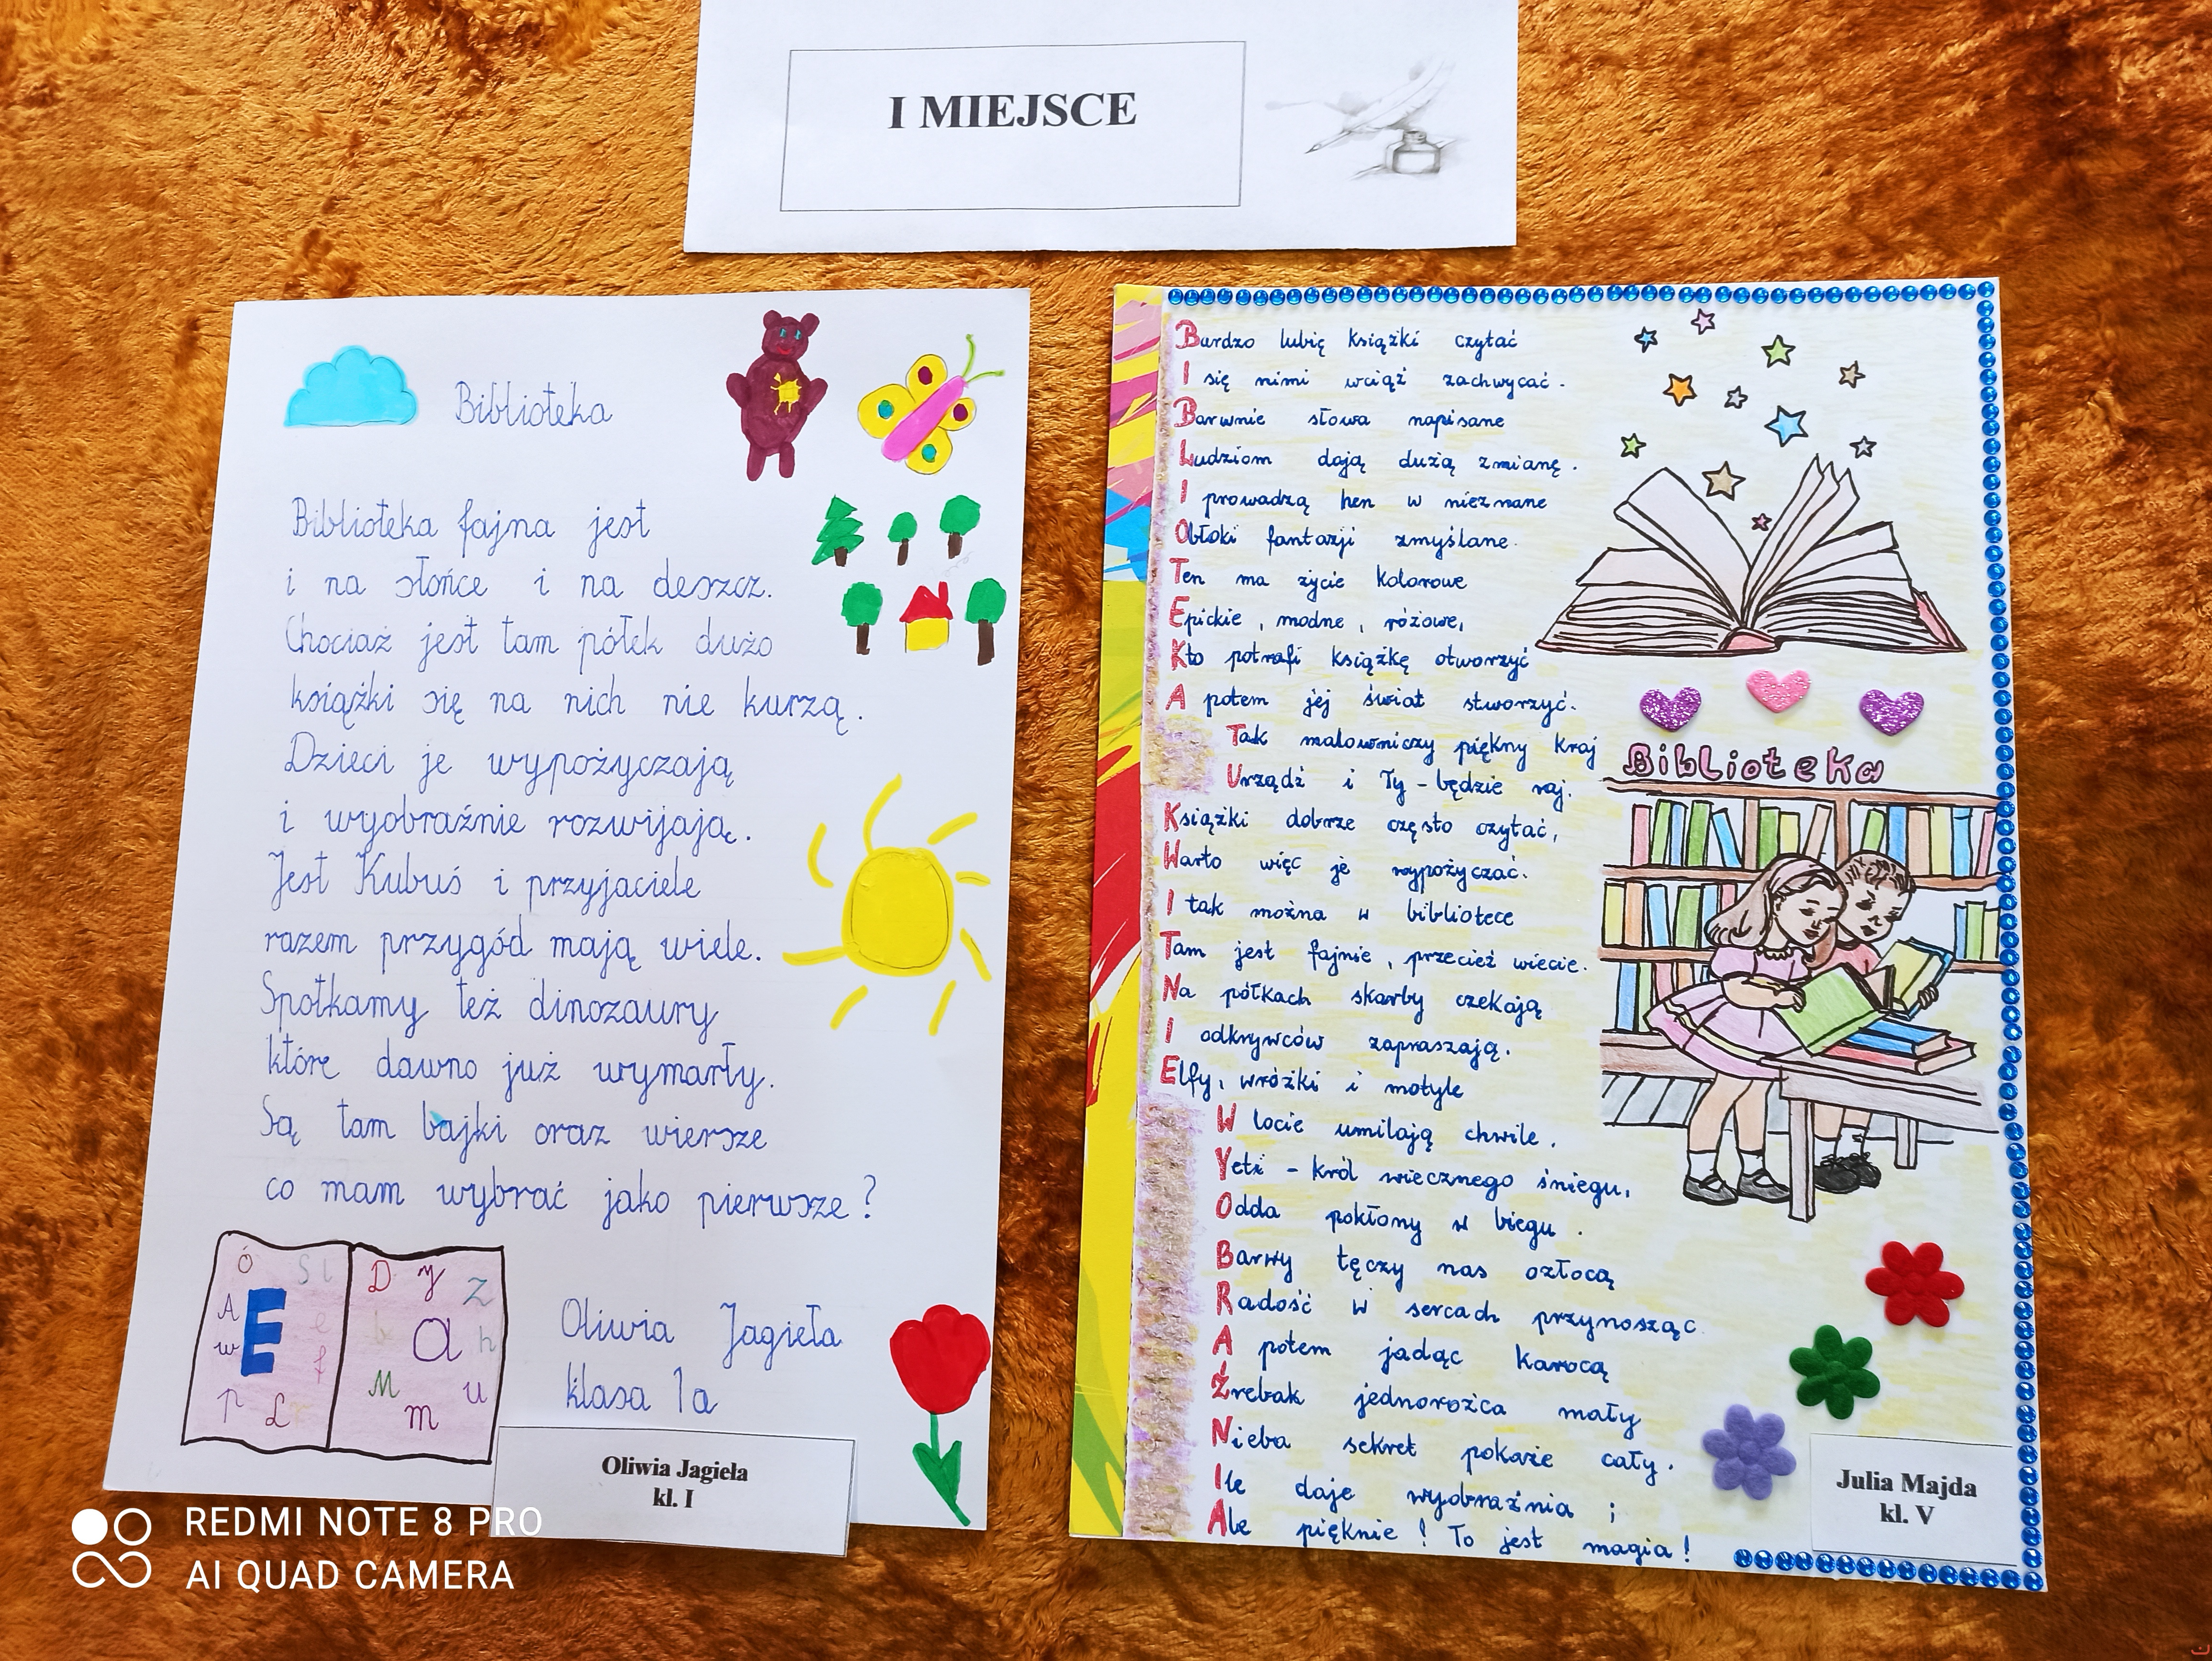 I MIEJSCE
Biblioteka
Biblioteka fajna jest
i na słońce i na deszcz.
Chociaż jest tam półek dużo
książki się na nich nie kurzą.
Dzieci je wypożyczają
i wyobraźnie rozwijają.
Jest Kubuś i przyjaciele
razem przygód mają wiele.
Spotkamy też dinozaury
które dawno już wymarły.
Są tam bajki oraz wiersze
co mam wybrać jako pierwsze?
Ó
A
w
E
p
L
D
y
Z
a
h
M
m
u
Oliwia Jagieła
klasa 1a
Oliwia Jagieła
kl. I
Bardzo lubię książki czytać
I się nimi wciąż zachwycać.
Barwnie słowa napisane
Ludziom dają dużą zmianę.
I prowadzą hen w nieznane
Obłoki fantazji zmyślane.
Ten ma życie kolorowe
Epickie, modne, różowe,
Kto potrafi książkę otworzyć
A potem jej świat stworzyć.
Tak malowniczy piękny kraj
Urządź i Ty - będzie raj.
Książki dobrze często czytać,
Warto więc je wypożyczać.
I tak można w bibliotece
Tam jest fajnie, przecież wiecie.
Na półkach skarby czekają
I odkrywców zapraszają.
Elfy, wróżki i motyle
W locie umilają chwile,
Yeti - król wiecznego śniegu,
Odda pokłony w biegu.
Barwy tęczy nas ozłocą
Radość w sercach przynosząc
A potem jadąc karocą
Źrebak jednorożca mały
Nieba sekret pokaże cały.
Ile daje wyobraźnia ;
Ale pięknie! To jest magia!
Biblioteka
Julia Majda
kl. V
REDMI NOTE 8 PRO
AI QUAD CAMERA